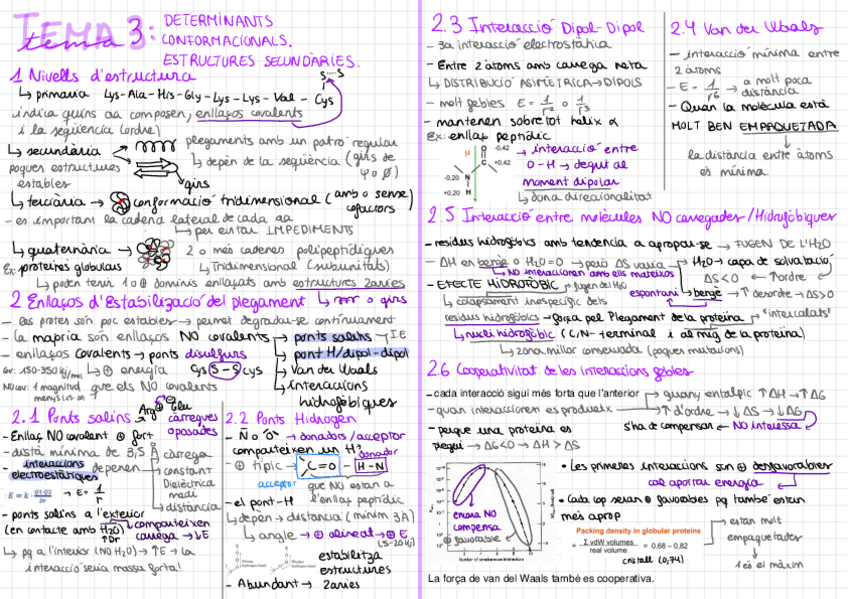 TEMA 3: DETERMINANTS
tema
CONFORMACIONALS.
ESTRUCTURES SECUNDÀRIES.
1 Nivells d'estructura
S---S
↳ primària Lys-Ala-His-Gly-Lys-Lys-Val-Cys
indica quins aa composen, enllaços covalents
i la seqüència (ordre)
↳ secundària → plegaments amb un patró regular
poques estructures
estables
↳ depèn de la seqüència (girs de φ o ϕ)
girs
↳ terciària → conformació tridimensional (amb o sense
cofactors
- és important la cadena lateral de cada aa
↳ per evitar IMPEDIMENTS
↳ quaternària → 2 o més cadenes polipeptídiques
Ex: proteïnes globulars
↳ Tridimensional (subunitats)
↳ poden tenir 1 o ⊕ dominis enllaçats amb estructures 2àries
↳ o girs
2 Enllaços d'Estabilització del plegament
- Les protes són poc estables → permet degradar-se contínuament
- la majoria són enllaços NO covalents → ponts salins → I.E
- enllaços covalents → ponts disulfurs
→ pont H/dipol-dipol
↳ ⊕ energia Cys S-S Cys
→ Van der Waals
que els NO covalents
→ interaccions
hidrofòbiques
2.1 Ponts salins
Arg⊕ Glu
càrregues
oposades
- Enllaç NO covalent ⊕ fort
- distà mínima de 3,5 Å
- interaccions
electroestàtiques
depenen
càrrega
constant
Dielèctrica
medi
distància
E = k · q1·q2 / Dr → E = 1/r
- ponts salins a l'exterior
(en contacte amb H2O)
↑Dr
comparteixen
càrrega → ↓E
↳ pq a l'interior (NO H2O) → ↑E → la
interacció seria massa forta!
2.2 Ponts Hidrogen
- N o O → donadors/acceptor
comparteixen un H
donador
- ⊕ típic → C=O - H-N
acceptor
que NO estan a
l'enllaç peptídic
- el pont-H
↳ depèn → distància (mínim 3Å)
↳ angle → ⊕ alineat → ⊕ E
estabilitza
estructures
2àries
- Abundant →
2.3 Interacció Dipol-Dipol
- 3a interacció electrostàtica
- Entre 2 àtoms amb càrrega neta
↳ DISTRIBUCIÓ ASIMÈTRICA → DIPOLS
- molt febles E = 1/r² o 1/r³
- mantenen sobretot hèlix α
Ex: enllaç peptídic
O -0,42
C +0,42
-0,20 N
+0,20 H
→ interacció entre
O-H → degut al
moment dipolar
↳ dona direccionalitat
2.4 Van der Waals
- interacció mínima entre
2 àtoms
- E = 1/r⁶ → a molt poca
distància
- Quan la molècula està
MOLT BEN EMPAQUETADA
la distància entre àtoms
és mínima
2.5 Interacció entre molècules NO carregades/Hidrofòbiques
- residus hidrofòbics amb tendència a apropar-se → FUGEN DE L'H2O
- ΔH en benzè o H2O = 0 → però ΔS varia
H2O → capa de solvatació
↳ NO interaccionen amb ells mateixos
ΔS<0 ← ↑ordre
- EFECTE HIDROFÒBIC
espontani
benzè → ↑desordre → ΔS>0
↳ col·lapsament inespecífic dels
residus hidrofòbics → força pel Plegament de la proteïna → "intercalats"
↳ nucli hidrofòbic (C/N-terminal i al mig de la proteïna)
↳ zona millor conservada (poques mutacions)
2.6 Cooperativitat de les interaccions febles
- cada interacció sigui més forta que l'anterior → guany entàlpic ↑ΔH → ↑ΔG
- quan interaccionen es produeix → ↑d'ordre → ↓ΔS → ↓ΔG
- perquè una proteïna es
plegui → ΔG<0 → ΔH > ΔS
s'ha de compensar ← NO interessa
encara NO
compensa
⊕ favorable
• Les primeres interaccions són ⊕ desfavorables
cal aportar energia
• Cada cop seran ⊕ favorables pq també estan
més aprop
Packing density in globular proteins
= Σ vdW volumes / real volume = 0,68 - 0,82
cristall (0,74)
→ estan molt
empaquetades
1 és el màxim
La força de van del Waals també es cooperativa.